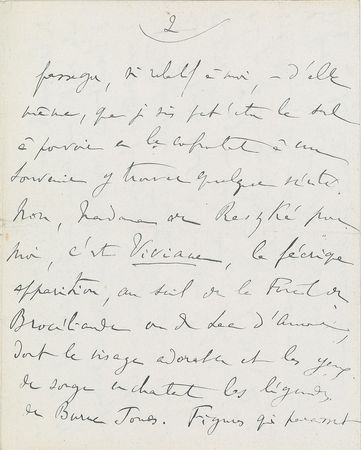 2
passage, si relatif à moi, – d'elle
même, que je suis peut'être le seul
à pouvoir en le à un
souvenir y trouver quelque
Non, Madame de Reszké pour
moi, c'est Viviane, la féerique
apparition, au seuil de la Forêt de
Brocéliande ou du Lac d'Amour,
dont le visage adorable et les yeux
de songe enchantent les légendes
de Burne Jones. Figures qui